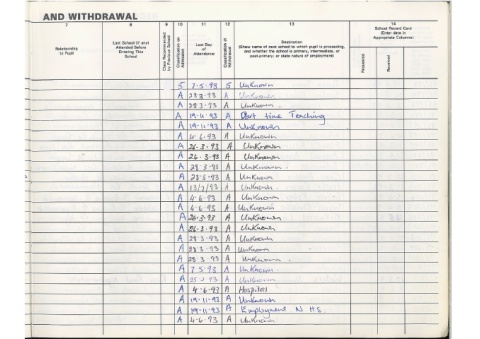 AND WITHDRAWAL
7 8 9 10 11 12 13 14
Relationship to Pupil
Last School (if any) Attended Before Entering This School
Class Recommended by Previous School
Classification on Admission
Last Day of Attendance
Classification at Withdrawal
Destination
(Show name of next school to which pupil is proceeding, and whether the school is primary, intermediate, or post-primary; or state nature of employment)
School Record Card
(Enter date in Appropriate Column)
Requested
Received
5 7-5-93 5 Unknown
A 28 3-93 A Unknown
A 28 3-93 A Unknown
A 19-11-93 A Part time Teaching
A 19-11-93 A Unknown
A 4-6-93 A Unknown
A 26-3-93 A Unknown
A 26-3-93 A Unknown
A 28 3-93 A Unknown
A 28-5-93 A Unknown
A 13/7/93 A Unknown
A 4-6-93 A Unknown
A 4-6-93 A Unknown
A 26-3-93 A Unknown
A 26-3-93 A Unknown
A 28 3-93 A Unknown
A 28 3-93 A Unknown
A 28-3-93 A Unknown
A 7-5-93 A Unknown
A A Unknown
A 4-6-93 A Hospital
A 19-11-93 A Unknown
A 19-11-93 A Employment N HS
A 4-6-93 A Unknown